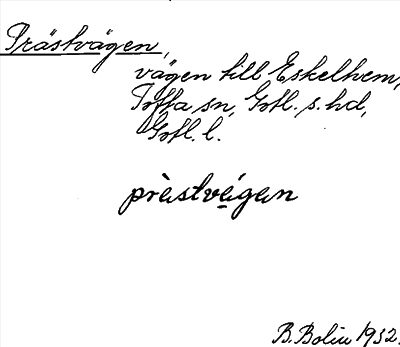 Prästvägen,
vägen till Eskelhem,
Tofta sn, Gotl. s. hd,
Gotl. l.
prèstvégen
B. Bolin 1932.